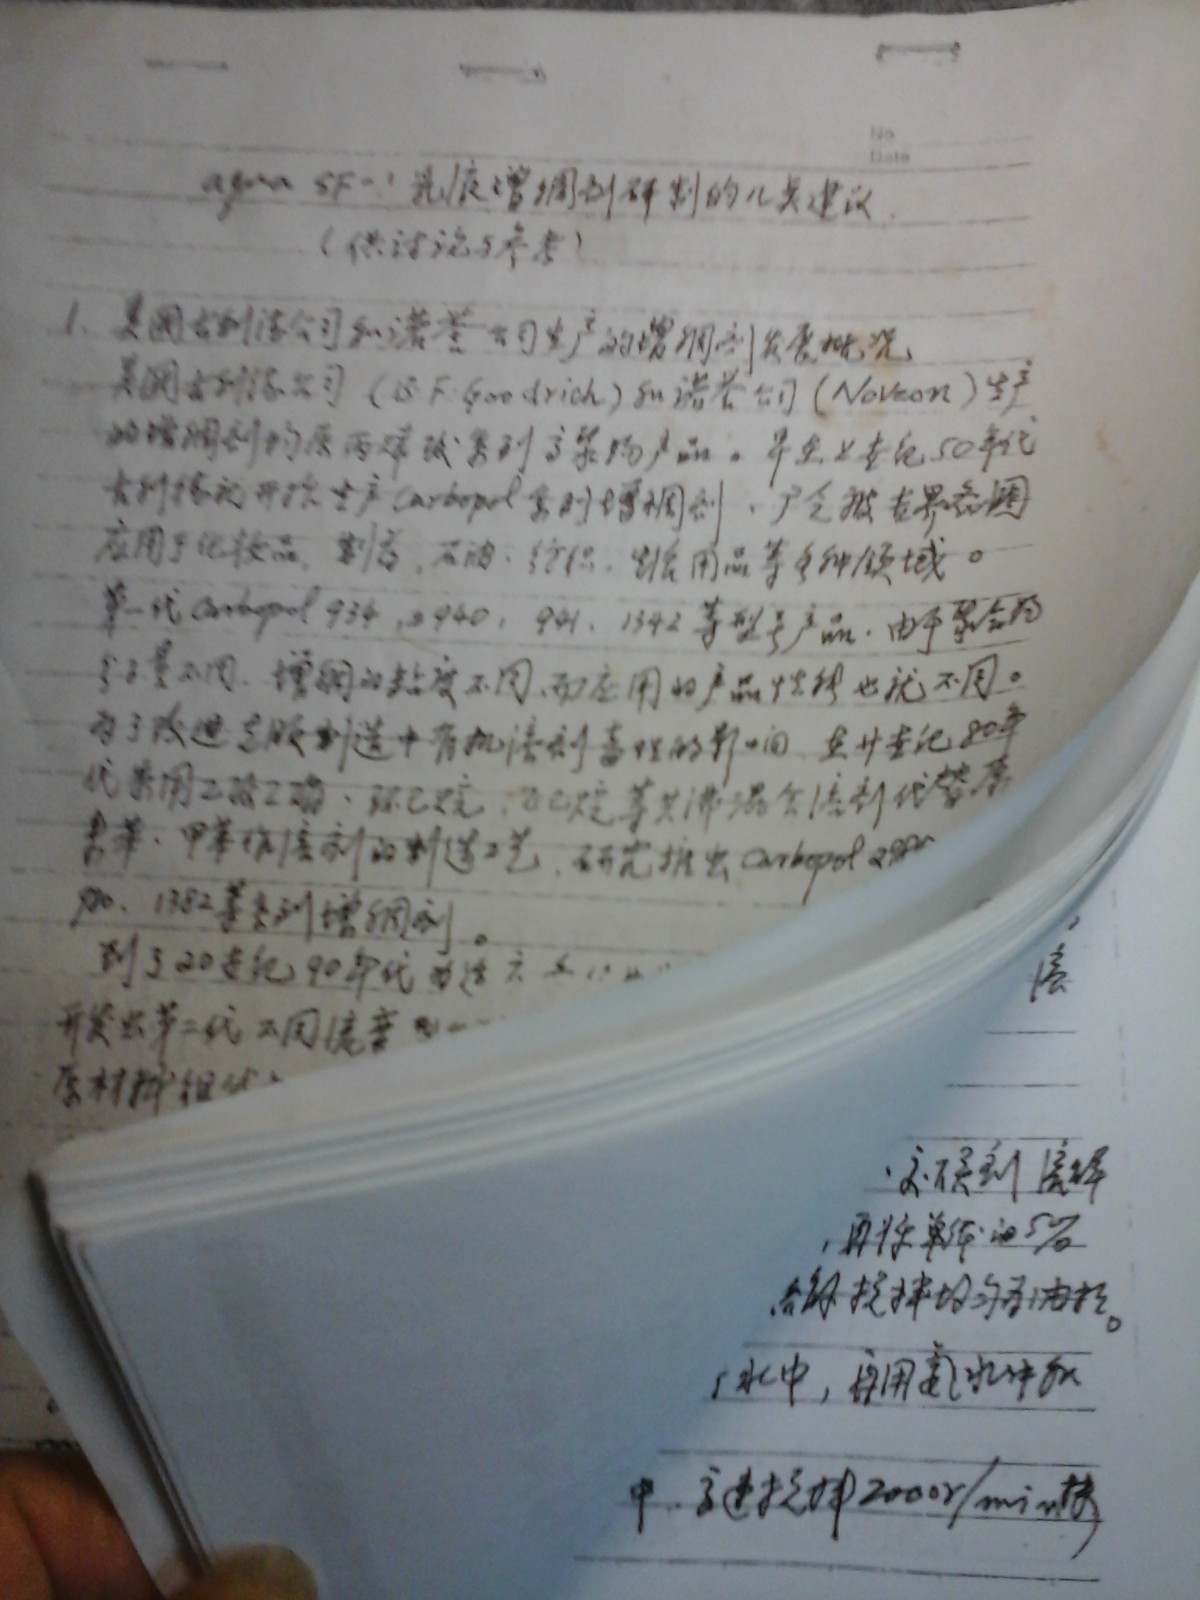 No
Date
aqua SF-1 乳液增稠剂研制的几点建议
(供讨论与参考)
1. 美国古利德公司和诺誉公司生产的增稠剂发展概况
美国古利德公司 (B.F.Goodrich) 和诺誉公司 (Noveon) 生产
的增稠剂均属丙烯酸系列高聚物产品。早在上世纪50年代
古利德就开始生产Carbopol系列增稠剂、广泛被世界各国
应用于化妆品、制药、石油、纺织、家居用品等多种领域。
第一代Carbopol 934、940、941、1342等型号产品,由于聚合物
分子量不同、增稠的粘度不同,而应用的产品性能也就不同。
为了改进克服制造中有机溶剂毒性的影响,在廿世纪80年
代采用乙酸乙酯、环己烷、己烷等共沸混合溶剂代替原
苯、甲苯作溶剂的制造工艺,研究推出Carbopol
980、1382等系列增稠剂。
到了20世纪90年代为适应
开发出第二代不同流变
原材料组
溶
溶解
再将单体的5%
搅拌均匀
水中,再用氨水中和
中,高速搅拌2000r/min